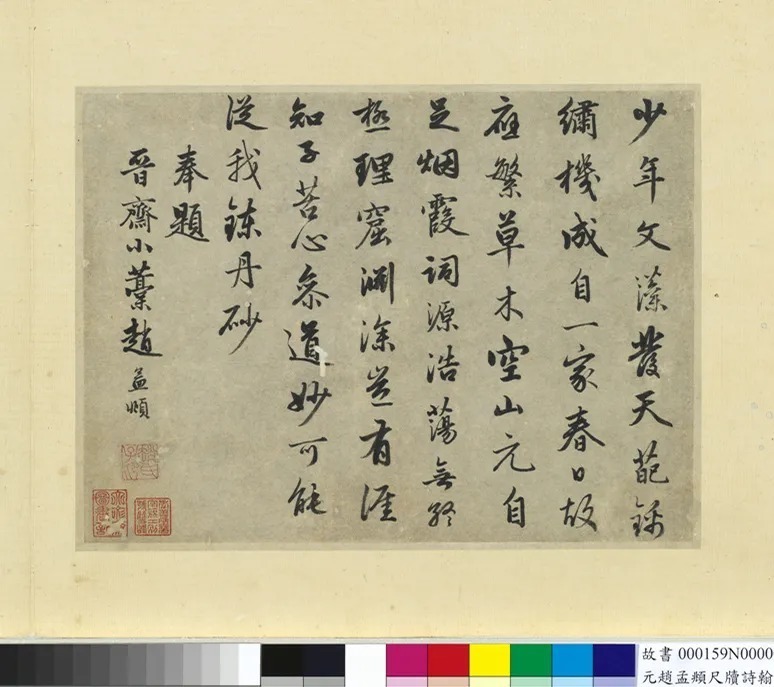 少年文藻發天葩錦
繡機成自一家春日故
應繁草木空山元自
足烟霞詞源浩蕩無終
極理窟淵深豈有涯
知子苦心叅道妙可能
從我鍊丹砂
奉題
晉齋小藁趙孟頫
故書 000159N0000
元趙孟頫尺牘詩翰